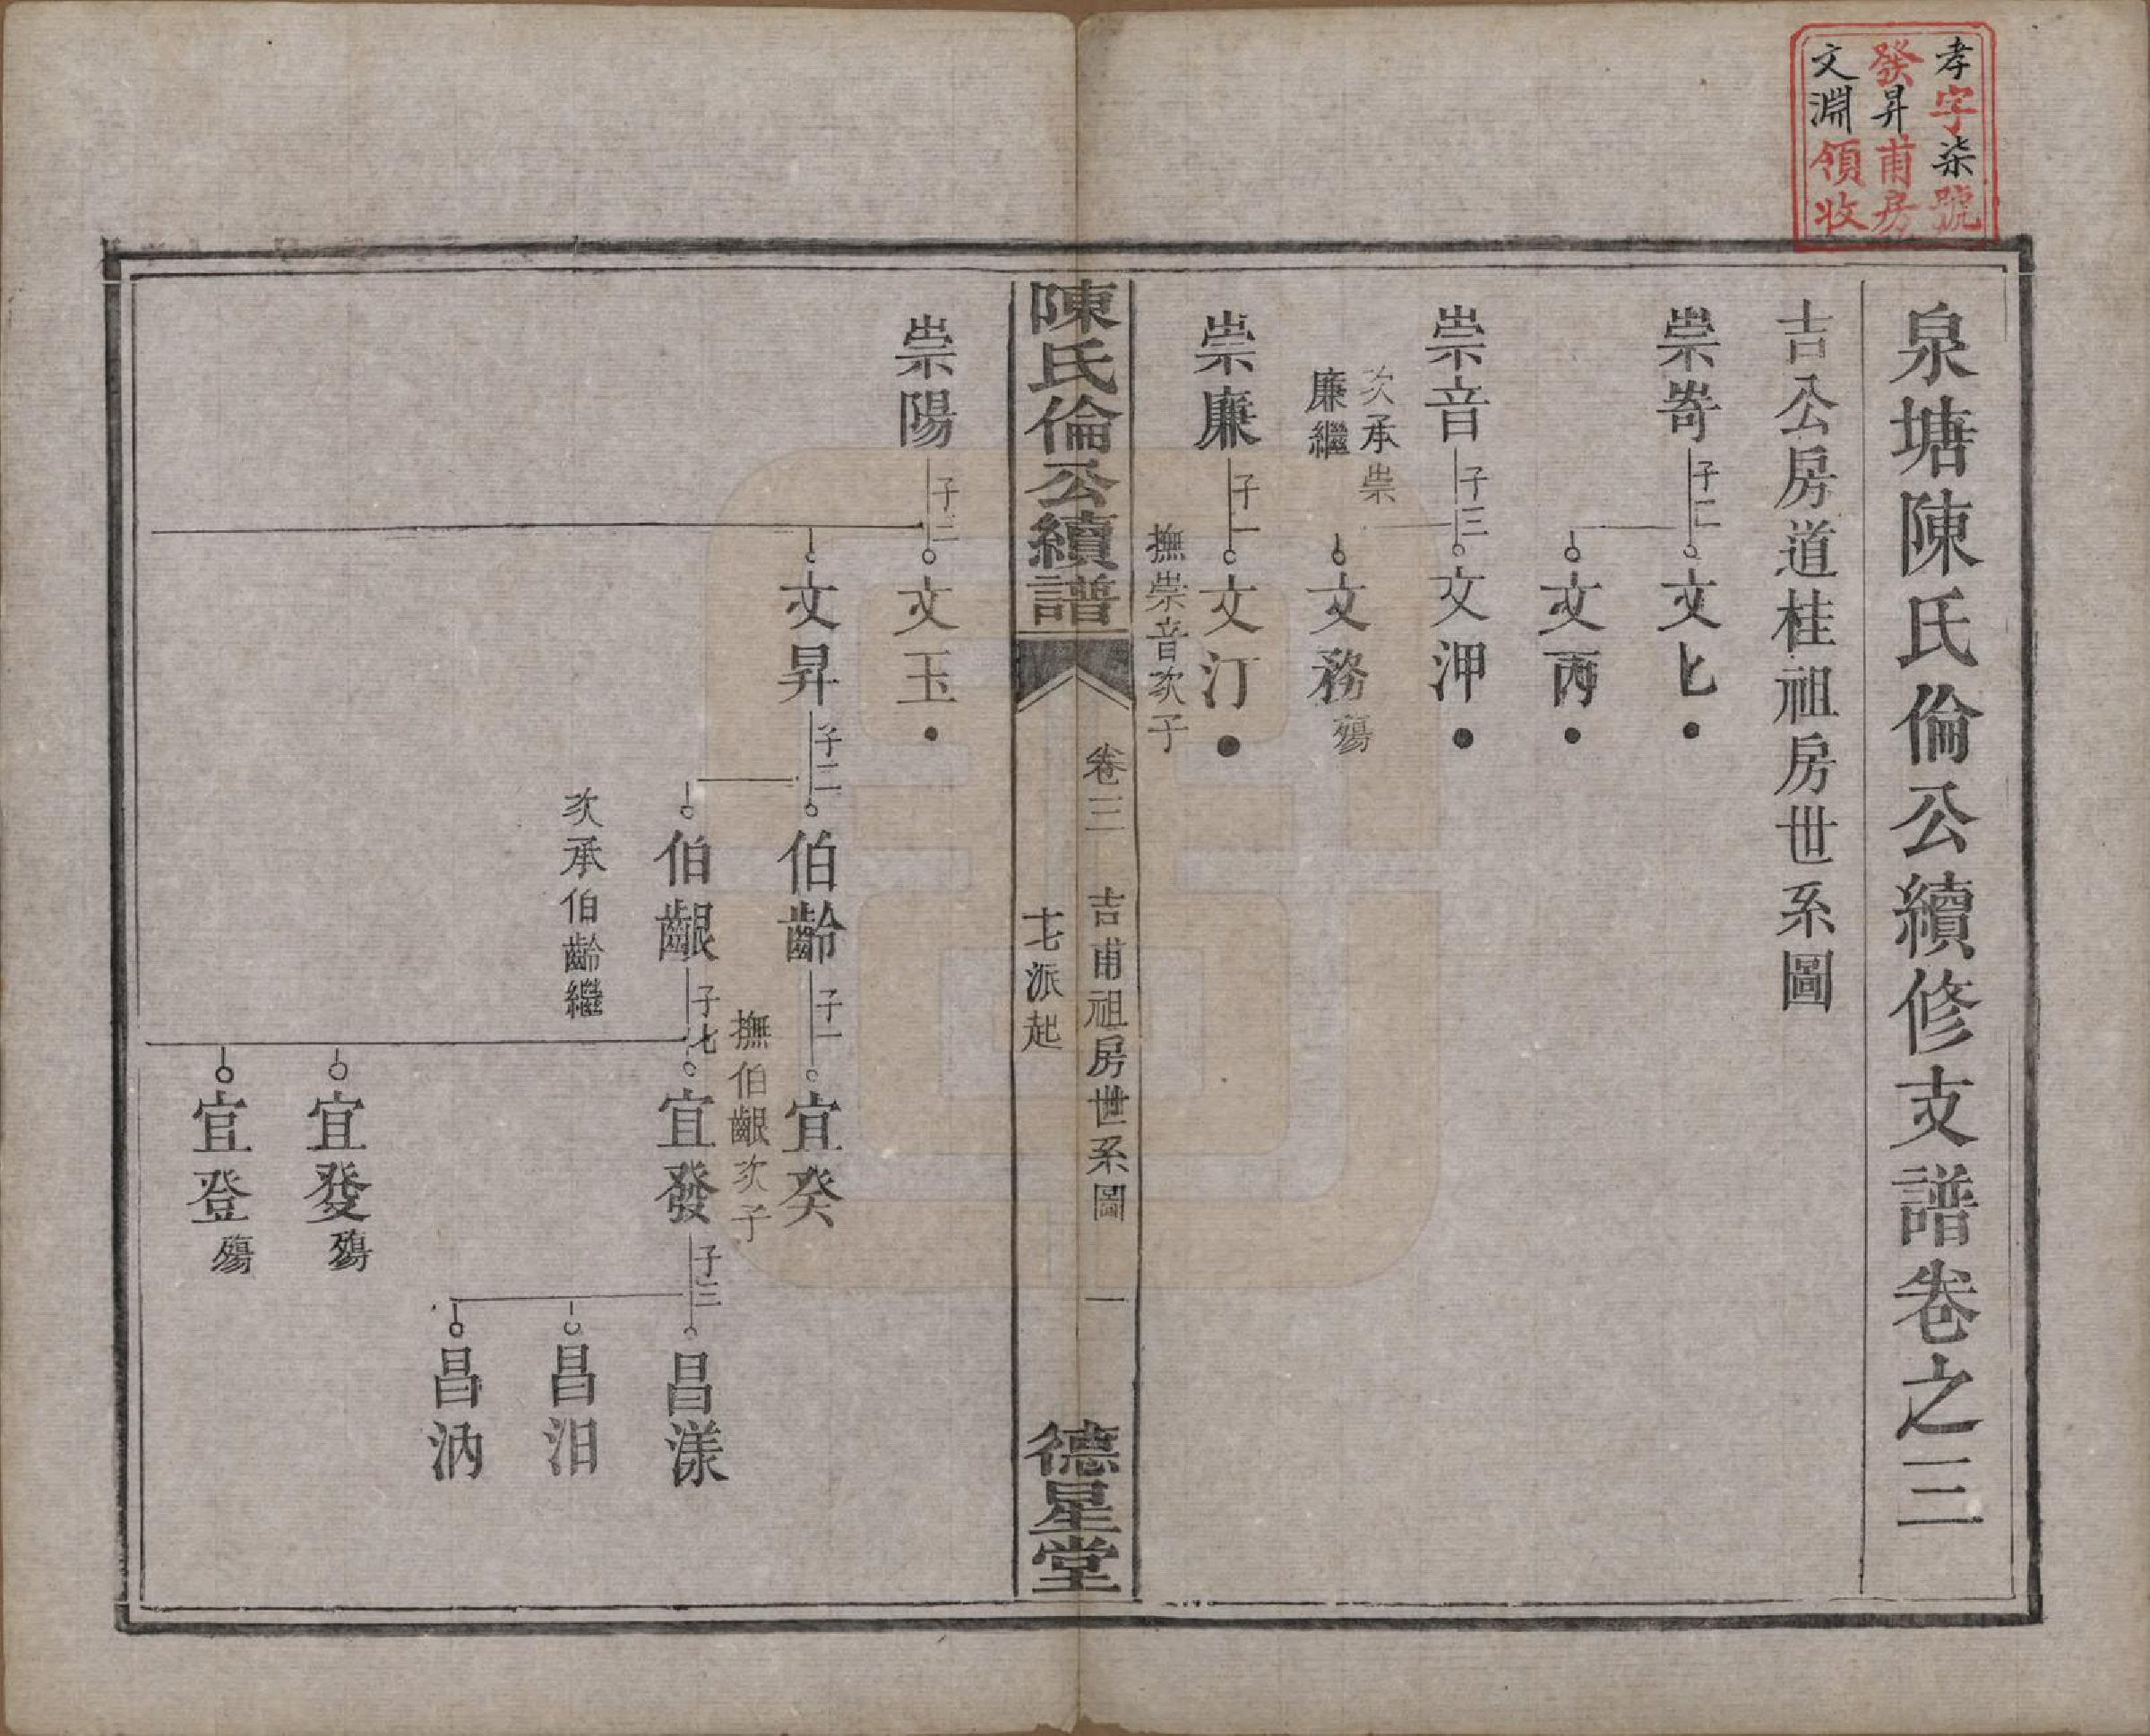 孝字柒號
發昇甫房
文淵領收
泉塘陳氏倫公續修支譜卷之三
吉公房道桂祖房世系圖
崇嵜 子二 文匕
文丙
崇音 子三 文泙
次承崇廉繼
文務 殤
崇廉 子一 文汀
撫崇音次子
陳氏倫公續譜 卷三 吉甫祖房世系圖 一 德星堂
十七派起
崇陽 子三 文玉
文昇 子二 伯齡 子一 宜癸
撫伯齦次子
伯齦 子七 宜發 子三 昌漾
次承伯齡繼
昌汨
昌汭
宜發 殤
宜登 殤